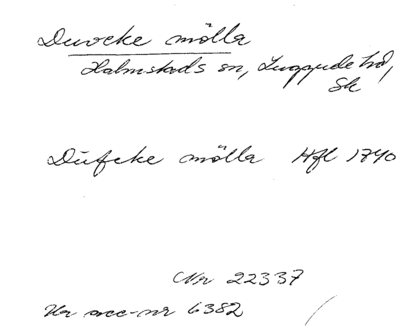 Duveke mölla
Halmstads sn, Luggude hd,
Sk
Düfcke mölla Hfl 1740
Nr 22337
Ur acc-nr 6382